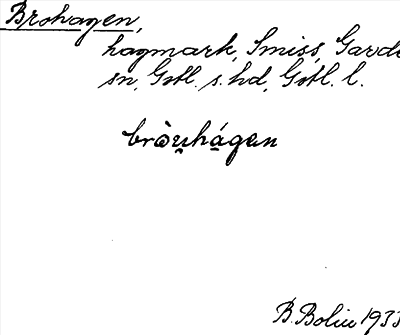 Brohagen,
hagmark, Smiss, Garde
sn, Gotl. s. hd, Gotl. l.
bròu̯hágan
B. Bolin 1933